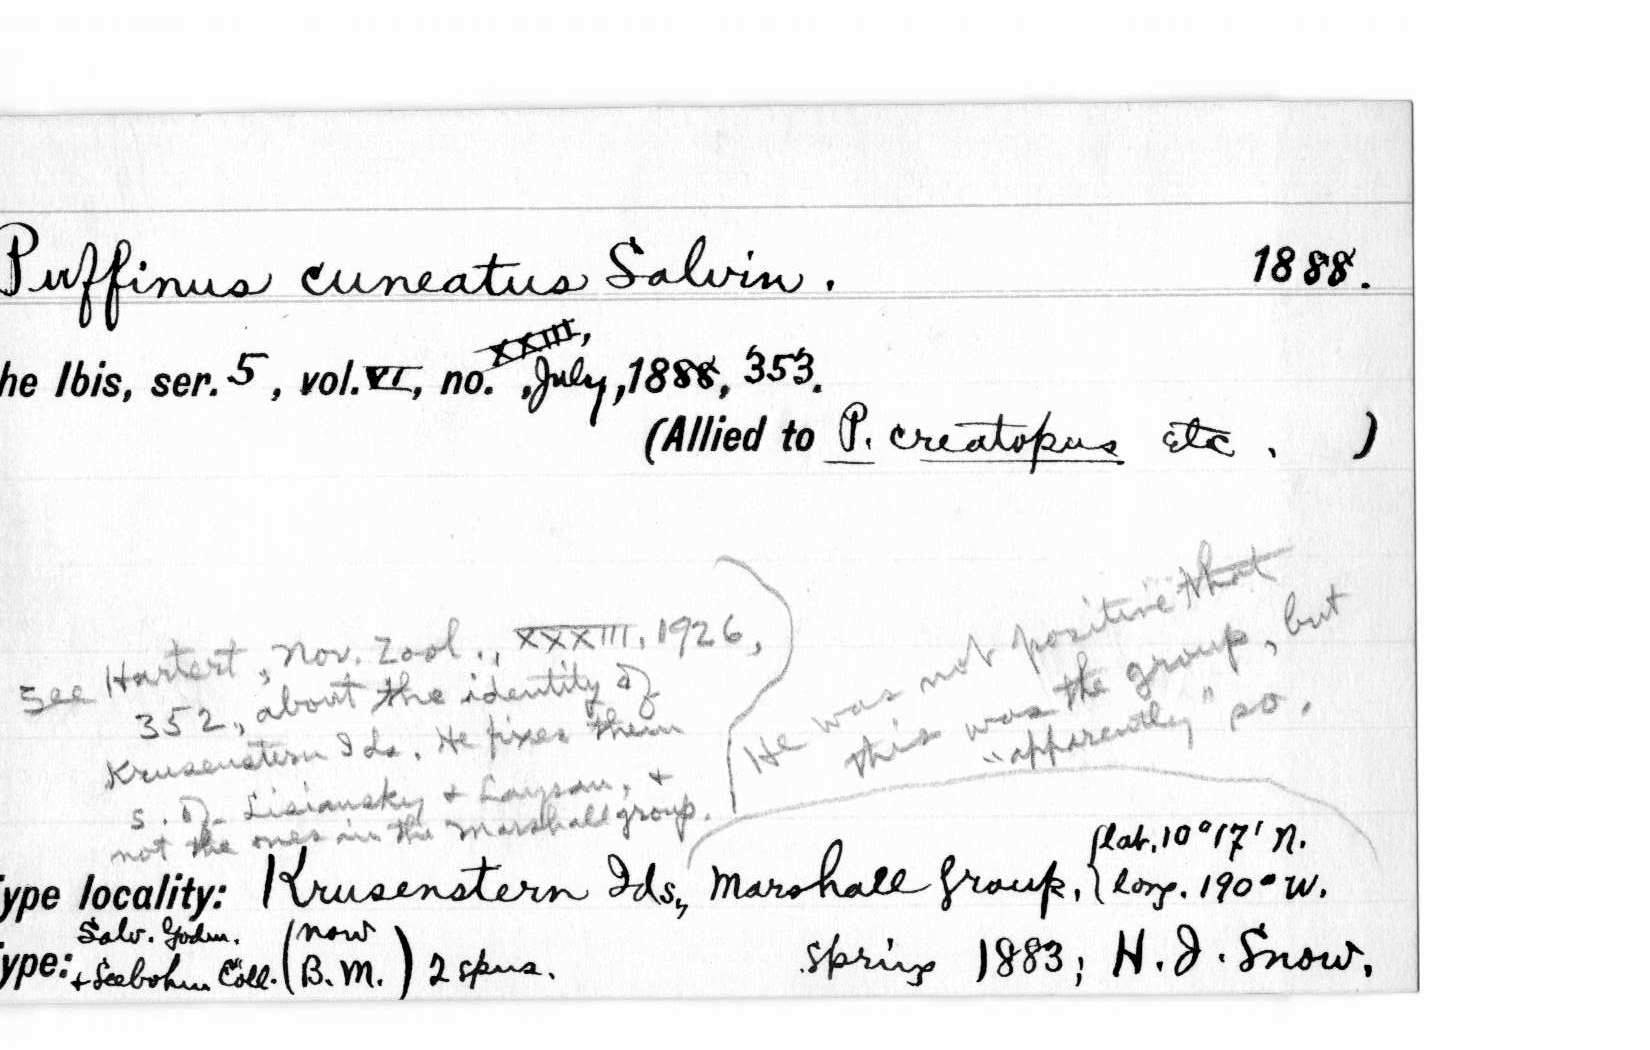 Puffinus cuneatus Salvin. 1888.
he Ibis, ser. 5, vol. VI, no. XXIII, July, 1888, 353.
(Allied to P. creatopus etc. )
See Hartert, Nov. Zool., XXXIII, 1926,
352, about the identity of
Krusenstern Ids. He fixes them
s. of Lisiansky + Laysan, +
not the ones in the Marshall group.
He was not positive that
this was the group, but
"apparently" so.
ype locality: Krusenstern Ids., Marshall Group, {lat. 10°17' N.
long. 190° W.
ype: Salv. Godm. + Seebohm Coll. (now B.M.) 2 spms. spring 1883; H. J. Snow.